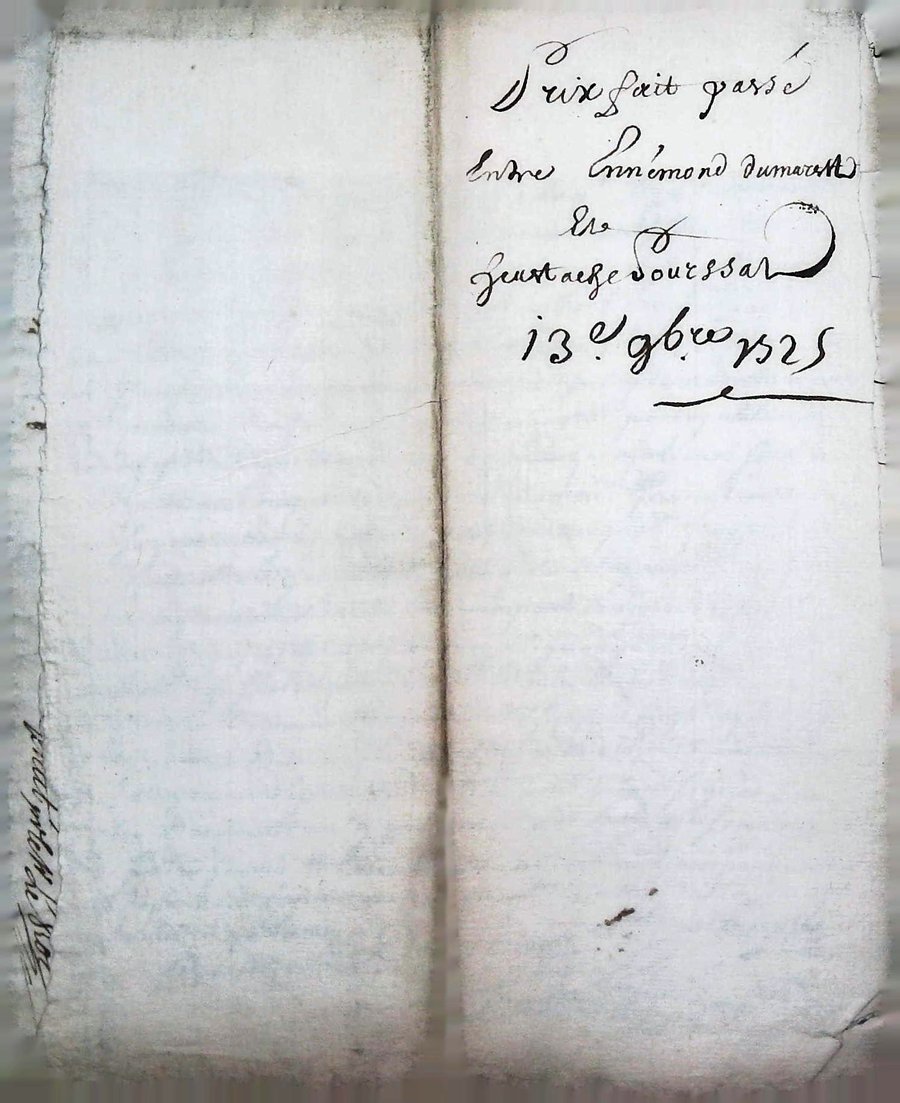 Prix fait passé
Entre Ennémond dumarest
Et
heustache Pourssal
13e. 9bre 1725